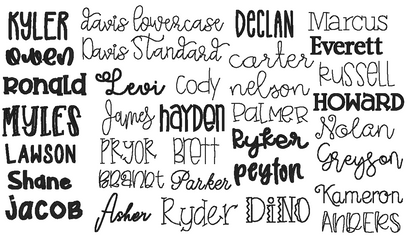 KYLER
Owen
Ronald
MYLES
LAWSON
Shane
JACOB
davis lowercase
Davis Standard
Levi
Cody
James
hayden
PRYOR
Brett
BRANDT
Parker
Asher
Ryder
DECLAN
carter
nelson
PALMER
Ryker
peyton
DINO
Marcus
Everett
RUSSELL
HOWARD
Nolan
Greyson
Kameron
ANDERS